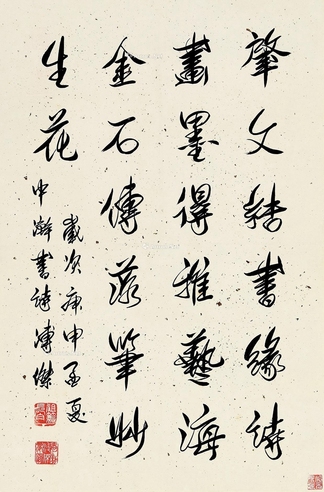 肇文結書緣詩
畫墨得雅藝海
金石傳落筆妙
生花
歲次庚申孟夏
中澣書詩溥傑